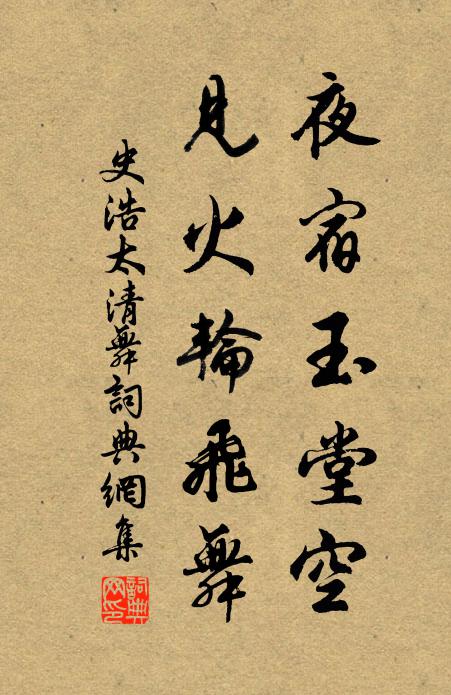 夜宿玉堂空
見火輪飛舞
史浩太清舞詞典網集
詞典網印